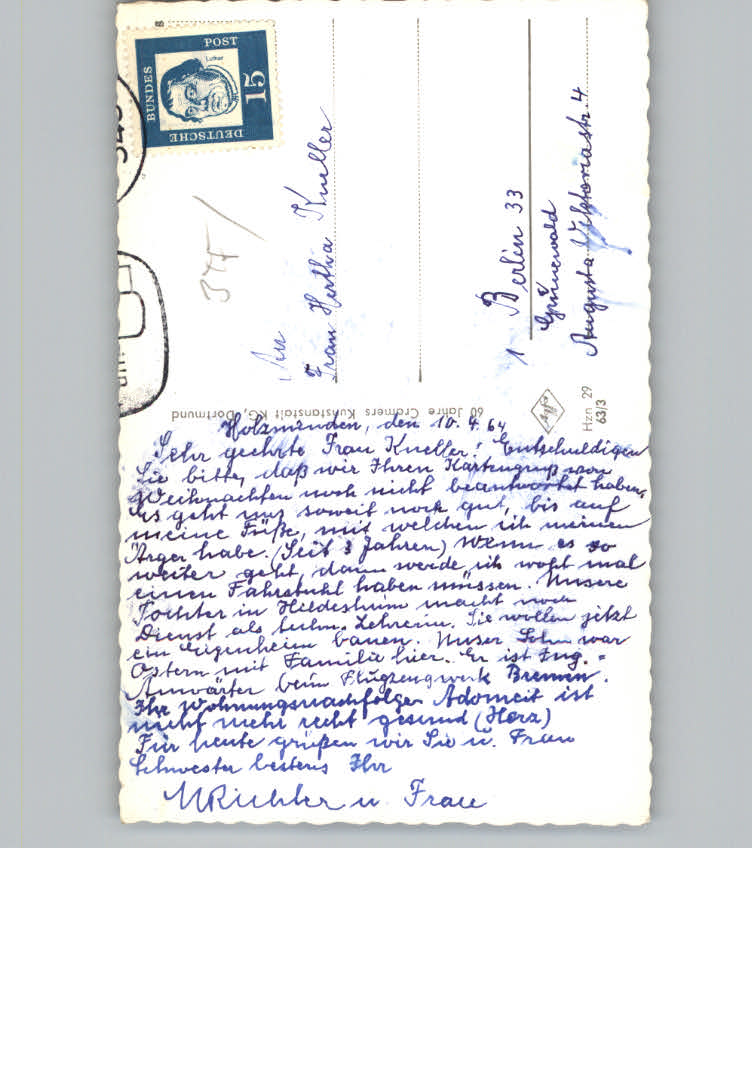 DEUTSCHE
BUNDES
POST
15
Luther
343
377
An
Frau Hertha Kneller
1 Berlin 33
Grunewald
Augusta Viktoriastr. 4
60 Jahre Cramers Kunstanstalt KG, Dortmund
Hzn 29
63/3
Holzminden, den 10. 4. 64
Sehr geehrte Frau Kneller! Entschuldigen
Sie bitte, daß wir Ihren Kartengruß von
Weihnachten noch nicht beantwortet haben,
Es geht uns soweit noch gut, bis auf
meine Füße, mit welchen ich meinen
Ärger habe. (Seit 3 Jahren) Wenn es so
weiter geht, dann werde ich wohl mal
einen Fahrstuhl haben müssen. Unsere
Tochter in Hildesheim macht noch
Dienst als techn. Lehrerin. Sie wollen jetzt
ein Eigenheim bauen. Unser Sohn war
Ostern mit Familie hier. Er ist Ing.-
Anwärter beim Flugzeugwerk Bremen.
Ihr Wohnungsnachfolger Adomeit ist
nicht mehr recht gesund (Herz)
Für heute grüßen wir Sie u. Frau
Schwester bestens Ihr
Richter u. Frau